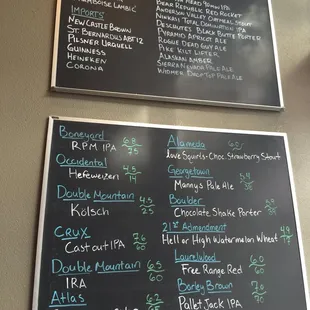 Framboise Lambic
Imports
New Castle Brown
St. Bernardus Abt 12
Pilsner Urquell
Guinness
Heineken
Corona
Bear Republic Red Rocket
Anderson Valley Oatmeal Stout
Ninkasi Total Domination IPA
Deschutes Black Butte Porter
Pyramid Apricot Ale
Rogue Dead Guy Ale
Pike Kilt Lifter
Alaskan Amber
Sierra Nevada Pale Ale
Widmer Drop Top Pale Ale
Boneyard
R.P.M. IPA
Occidental 4.5
Hefeweizen 14
Double Mountain 4.5
Kölsch 25
Crux 7.6
Cast out IPA
Double Mountain 6.5
IRA 60
Atlas 6.2
Alameda
Love Squirls-Choc Strawberry Stout
Georgetown
Manny's Pale Ale
Boulder
Chocolate Shake Porter
21st Admendment
Hell or High Watermelon Wheat
Laurelwood
Free Range Red 60
Barley Brown
Pallet Jack IPA